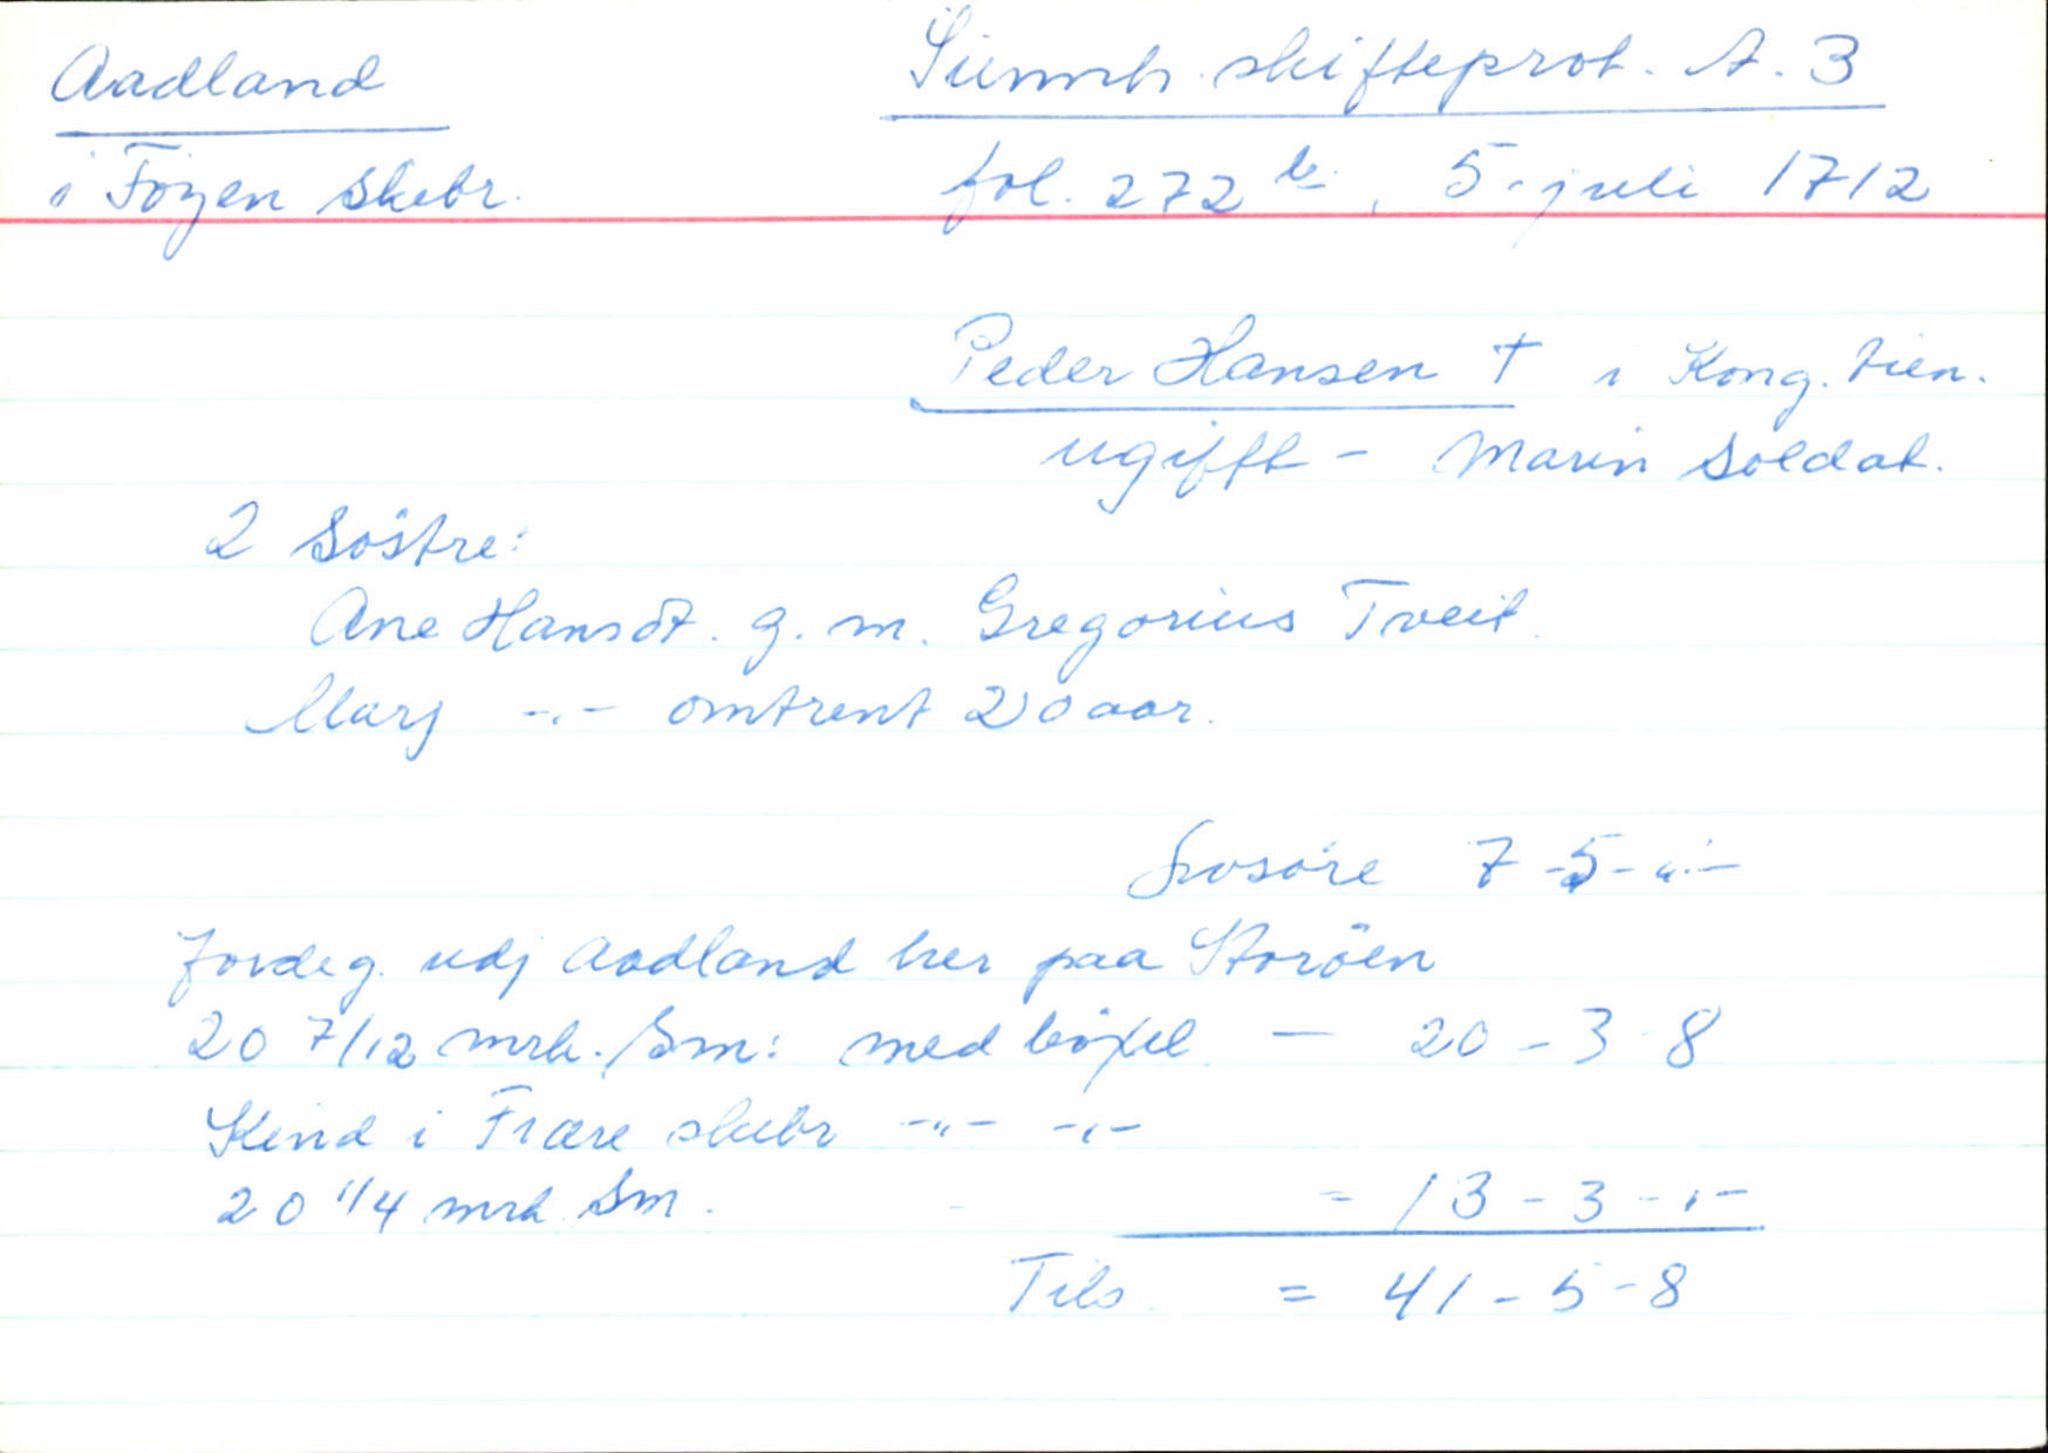 Aadland
i Föyen Skebr.
Sunnh. skifteprot. A. 3
fol. 272 b, 5. juli 1712
Peder Hansen † i Kong. tien.
ugifft - Marin Soldat.
2 Söstre:
Ane Hansdt. g. m. Gregorius Tveit.
Marj -"- omtrent 20 aar.
Lösöre 7-5-"-
Jordeg. udj Aadland her paa Storöen
20 7/12 mrk. Sm: med böxel - 20-3-8
Kind i Frære skebr -"- -"-
20 1/4 mrk. Sm. = 13-3-"-
Tils. = 41-5-8